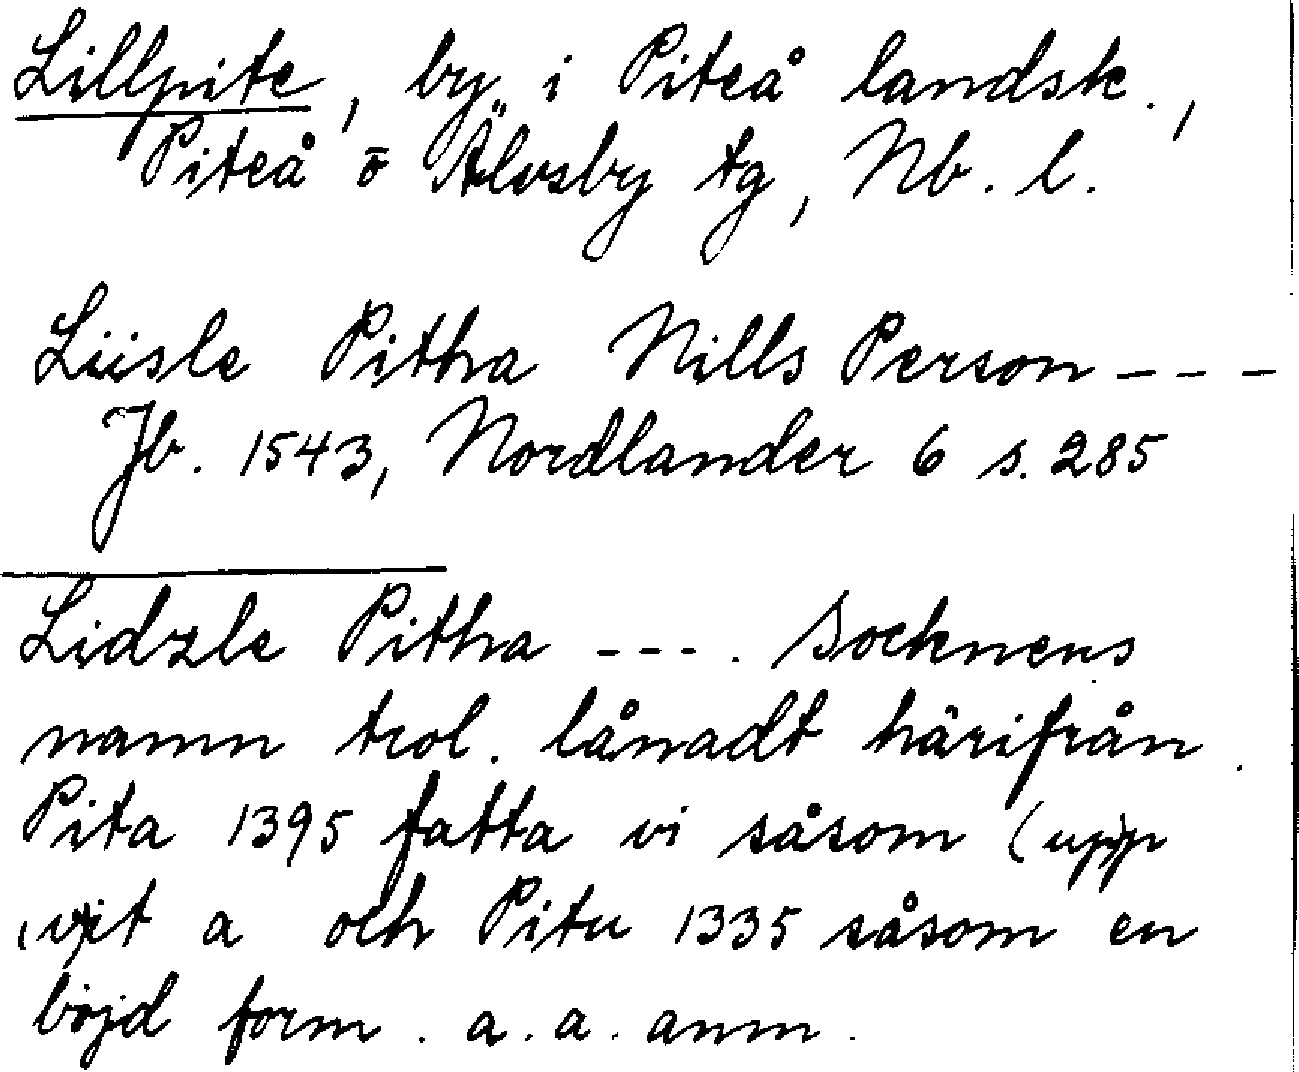 Lillpite, by i Piteå landsk.,
Piteå o Älvsby tg, Nb. l.
Liisle Pitha Nills Person - - -
Jb. 1543, Nordlander 6 s. 285
Lidzle Pitha - - - . Socknens
namn trol. lånadt härifrån.
Pita 1395 fatta vi såsom (upp
a och Pitu 1335 såsom en
böjd form. a. a. anm.